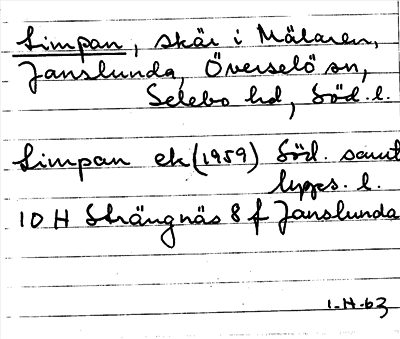 Simpan, skär i Mälaren,
Janslunda, Överselö sn,
Selebo hd, Söd. l.
Simpan ek (1959) Söd. samt
Upps. l.
10 H Strängnäs 8 f Janslunda
1-H-63